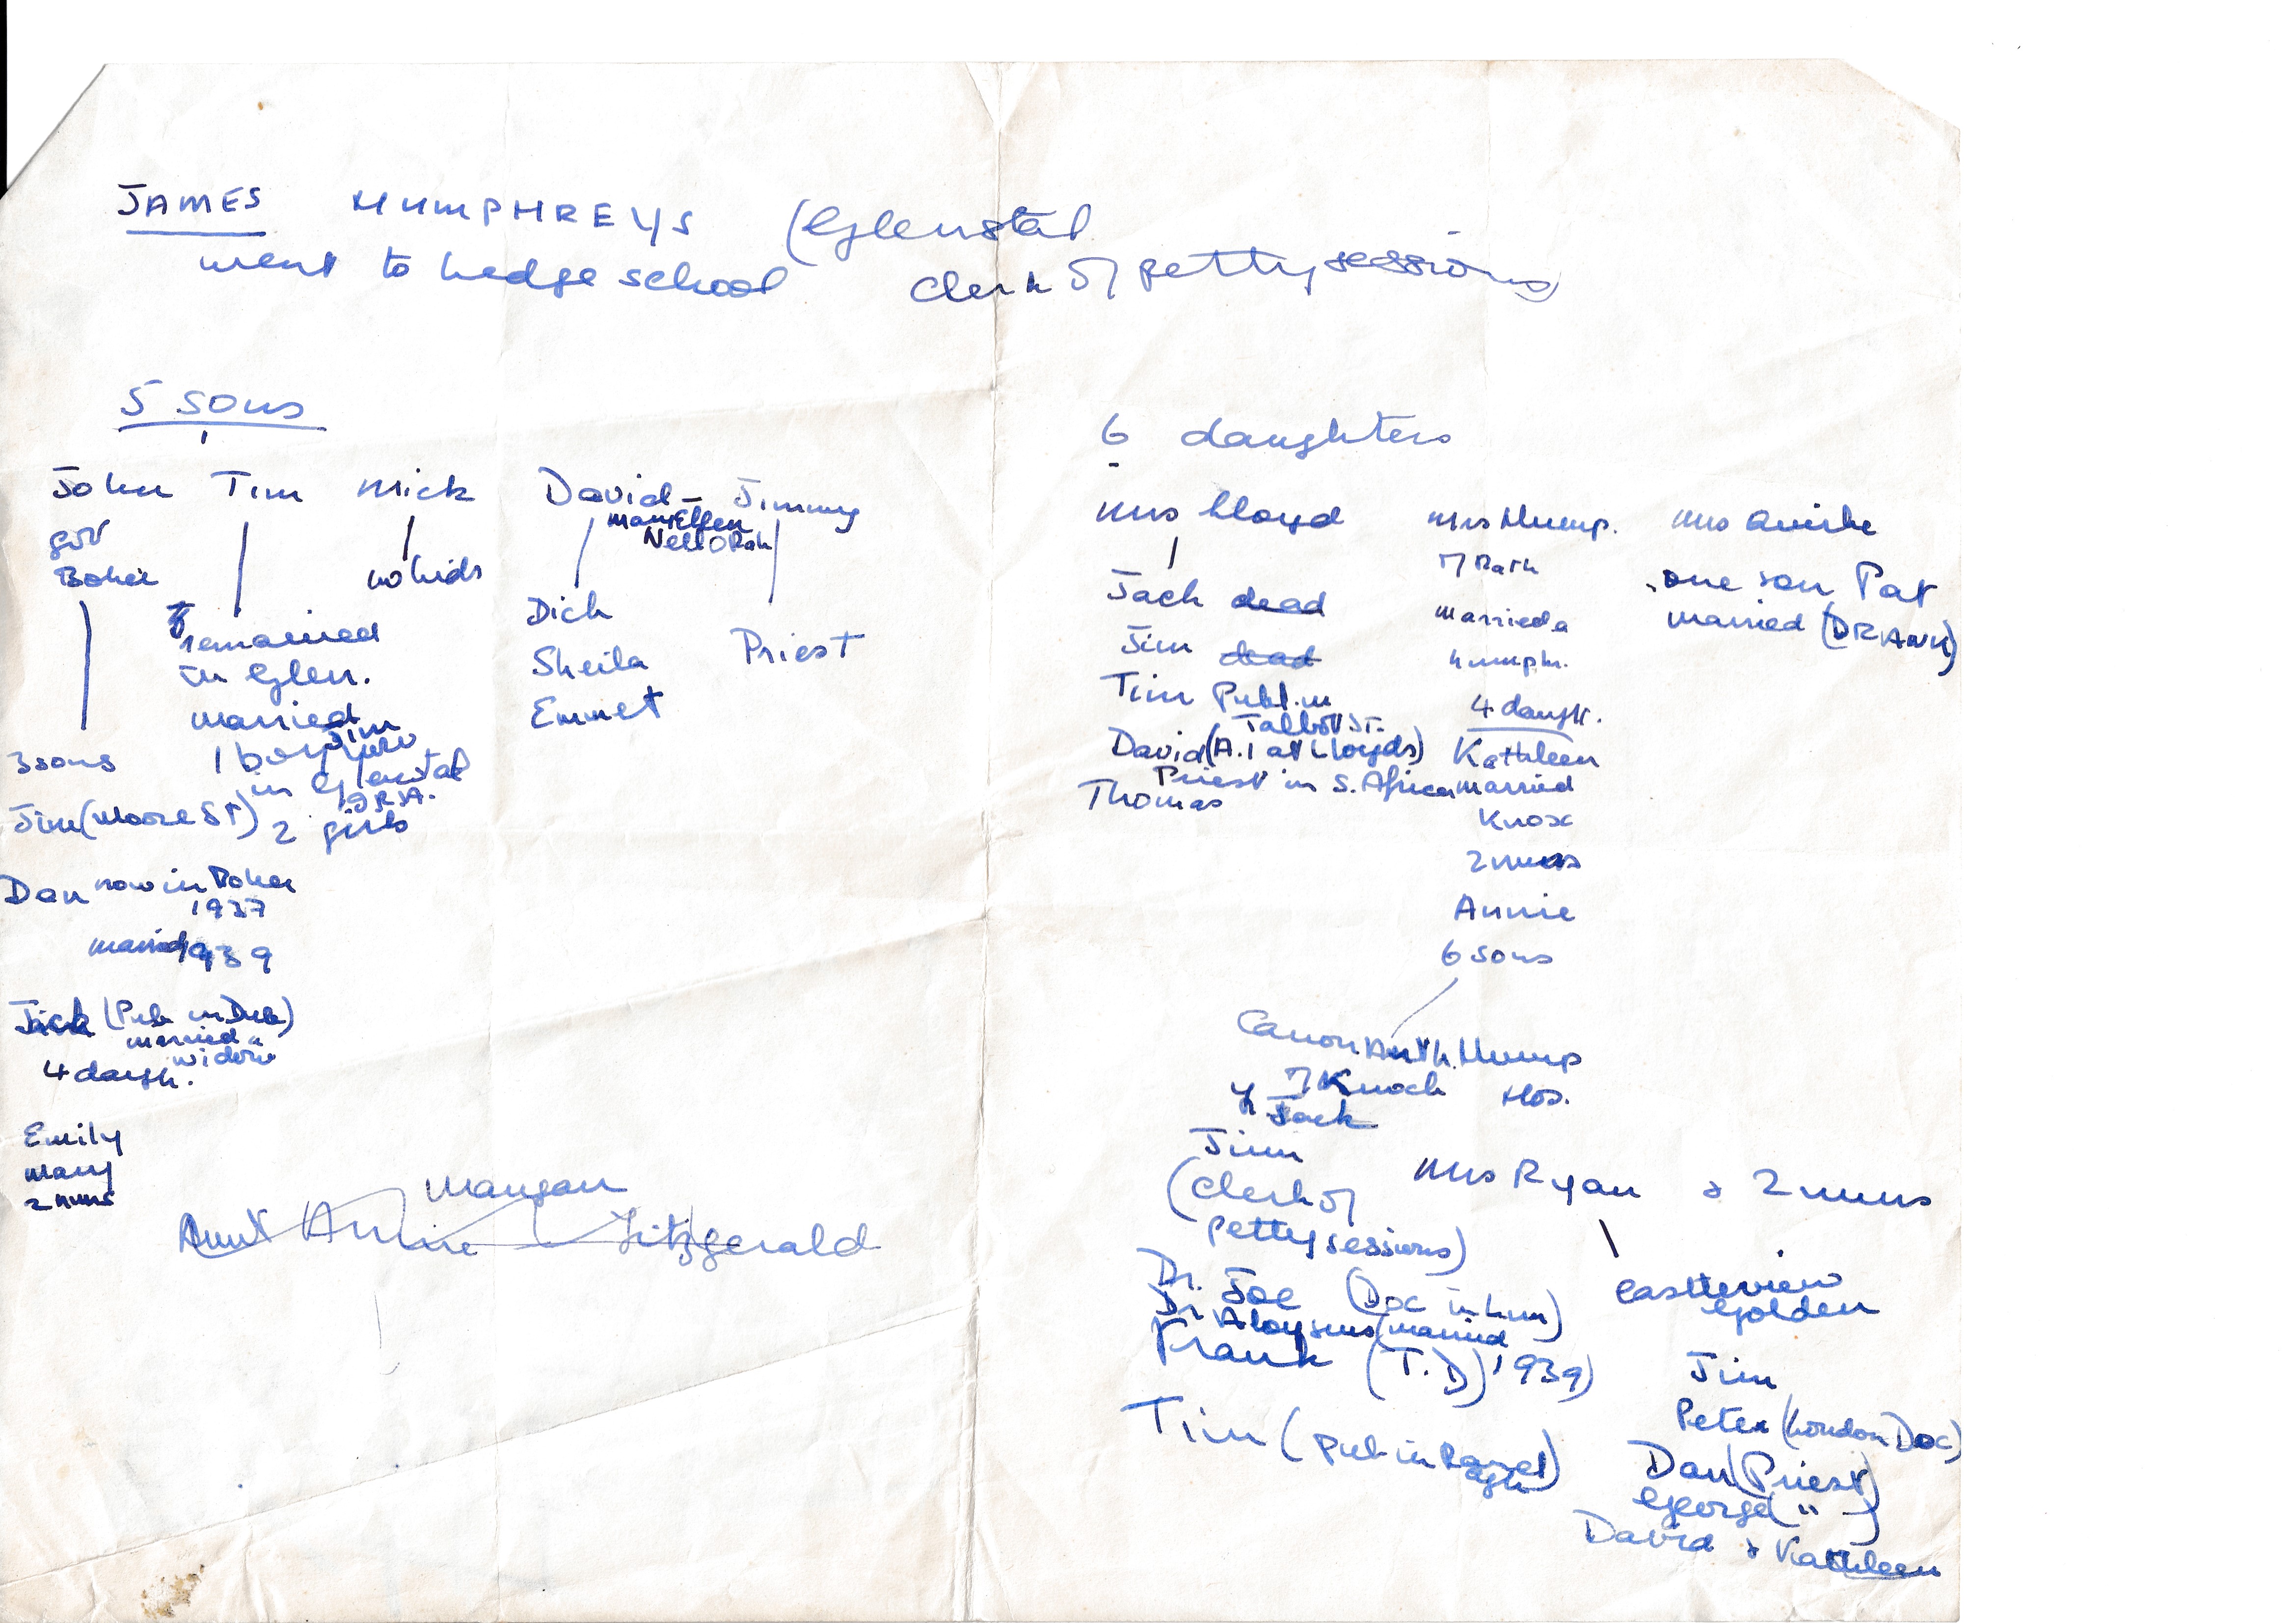 JAMES HUMPHREYS (Glenstal
went to hedge school clerk of petty sessions)
5 sons
John Tim Mick David – Jimmy
got
Boher
no kids
married Ellen
Nell O Rah
remained
in Glen.
married
1 boy Jim now
in Glenstal
2 girls
Dick
Sheila
Emmet
Priest
3 sons
Jim (Moore St)
Dan now in Boher
1937
married 1939
Jack (Pub in Dub)
married a
widow
4 daugh.
Emily
Mary
2 nuns
Mangan
Aunt Annie Fitzgerald
6 daughters
Mrs Lloyd Mrs Hump. Mrs Quirke
of Rath
married a
humph.
one son Pat
married (DRANK)
Jack dead
Jim dead
Tim Publ. in
Talbot St.
David (A.1 at Lloyds)
Priest in S. Africa
Thomas
4 daught.
Kathleen
married
Knox
2 nuns
Annie
6 sons
Canon Anth. Hump
of Knock Hos.
Jack
Jim
(Clerk of
petty sessions)
Dr. Joe (Doc in Lim)
Dr. Aloysius (married
Frank (T.D) 1939)
Tim (pub in Ranelagh)
Mrs Ryan & 2 nuns
Castleview
Golden
Jim
Peter (London Doc)
Dan (Priest)
George ( " )
David & Kathleen